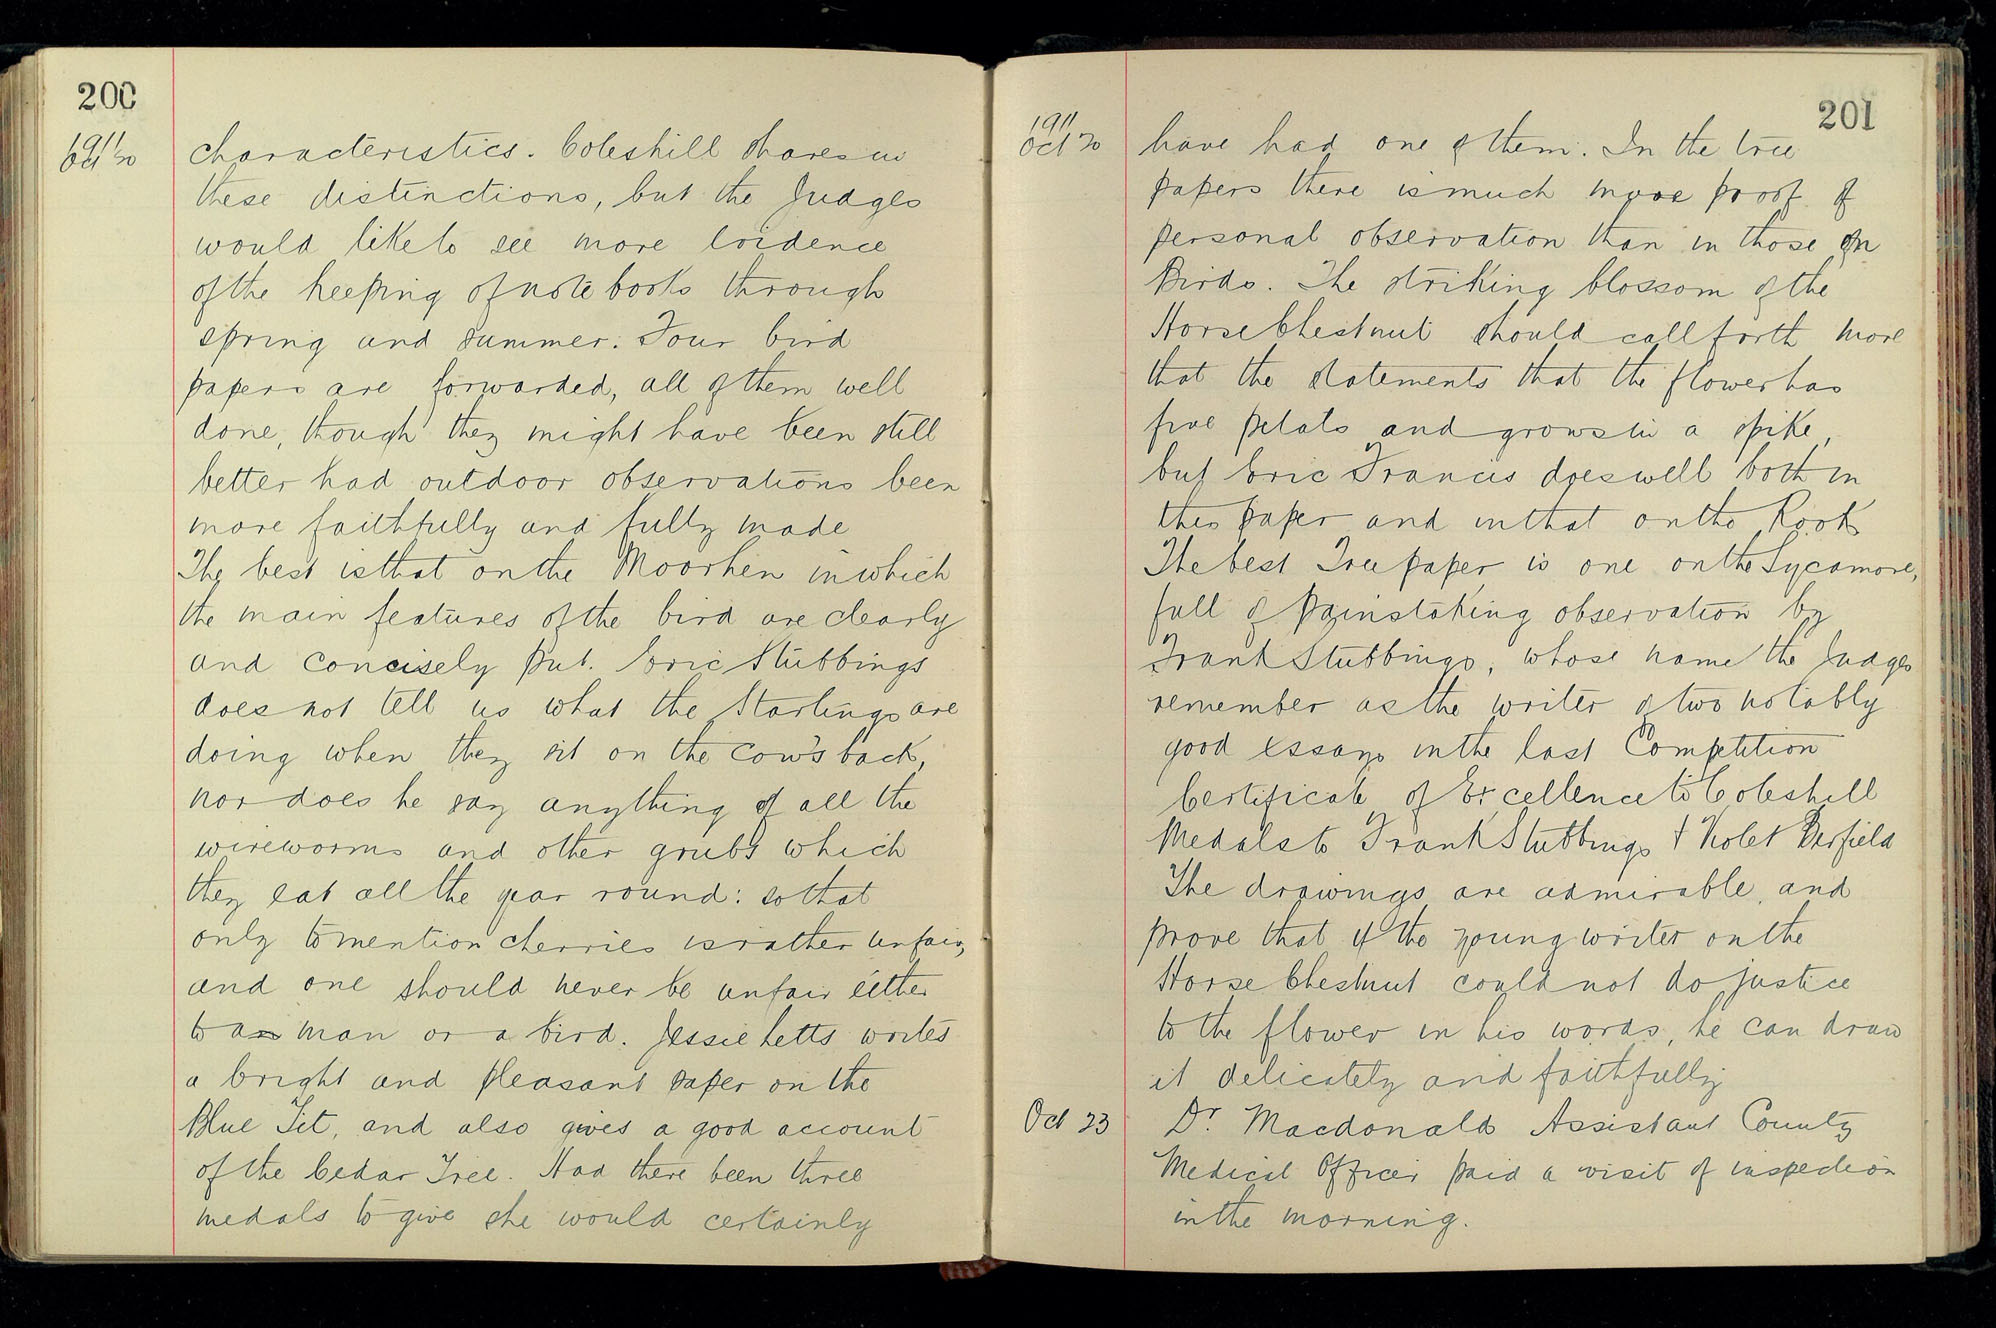 200
1911
Oct 20
characteristics. Coleshill shares in
these distinctions, but the Judges
would like to see more evidence
of the keeping of note books through
spring and summer. Four bird
papers are forwarded, all of them well
done, though they might have been still
better had outdoor observations been
more faithfully and fully made
The best is that on the Moorhen in which
the main features of the bird are clearly
and concisely put. Eric Stubbings
does not tell us what the Starlings are
doing when they sit on the cow's back,
nor does he say anything of all the
wireworms and other grubs which
they eat all the year round: so that
only to mention cherries is rather unfair,
and one should never be unfair either
to a man or a bird. Jessie Letts writes
a bright and pleasant paper on the
Blue Tit, and also gives a good account
of the Cedar Tree. Had there been three
medals to give she would certainly
201
1911
Oct 20
have had one of them. In the tree
papers there is much more proof of
personal observation than in those on
Birds. The striking blossom of the
Horse Chestnut should call forth more
that the statements that the flower has
five petals and grows in a spike,
but Eric Francis does well both in
this paper and in that on the Rook
The best Tree paper is one on the Sycamore,
full of painstaking observation by
Frank Stubbings, whose name the Judges
remember as the writer of two notably
good essays in the last Competition
Certificate of Excellence to Coleshill
Medals to Frank Stubbings + Violet
The drawings are admirable, and
prove that if the young writer on the
Horse Chestnut could not do justice
to the flower in his words, he can draw
it delicately and faithfully
Oct 23
Dr. Macdonald Assistant County
Medical Officer paid a visit of inspection
in the morning.